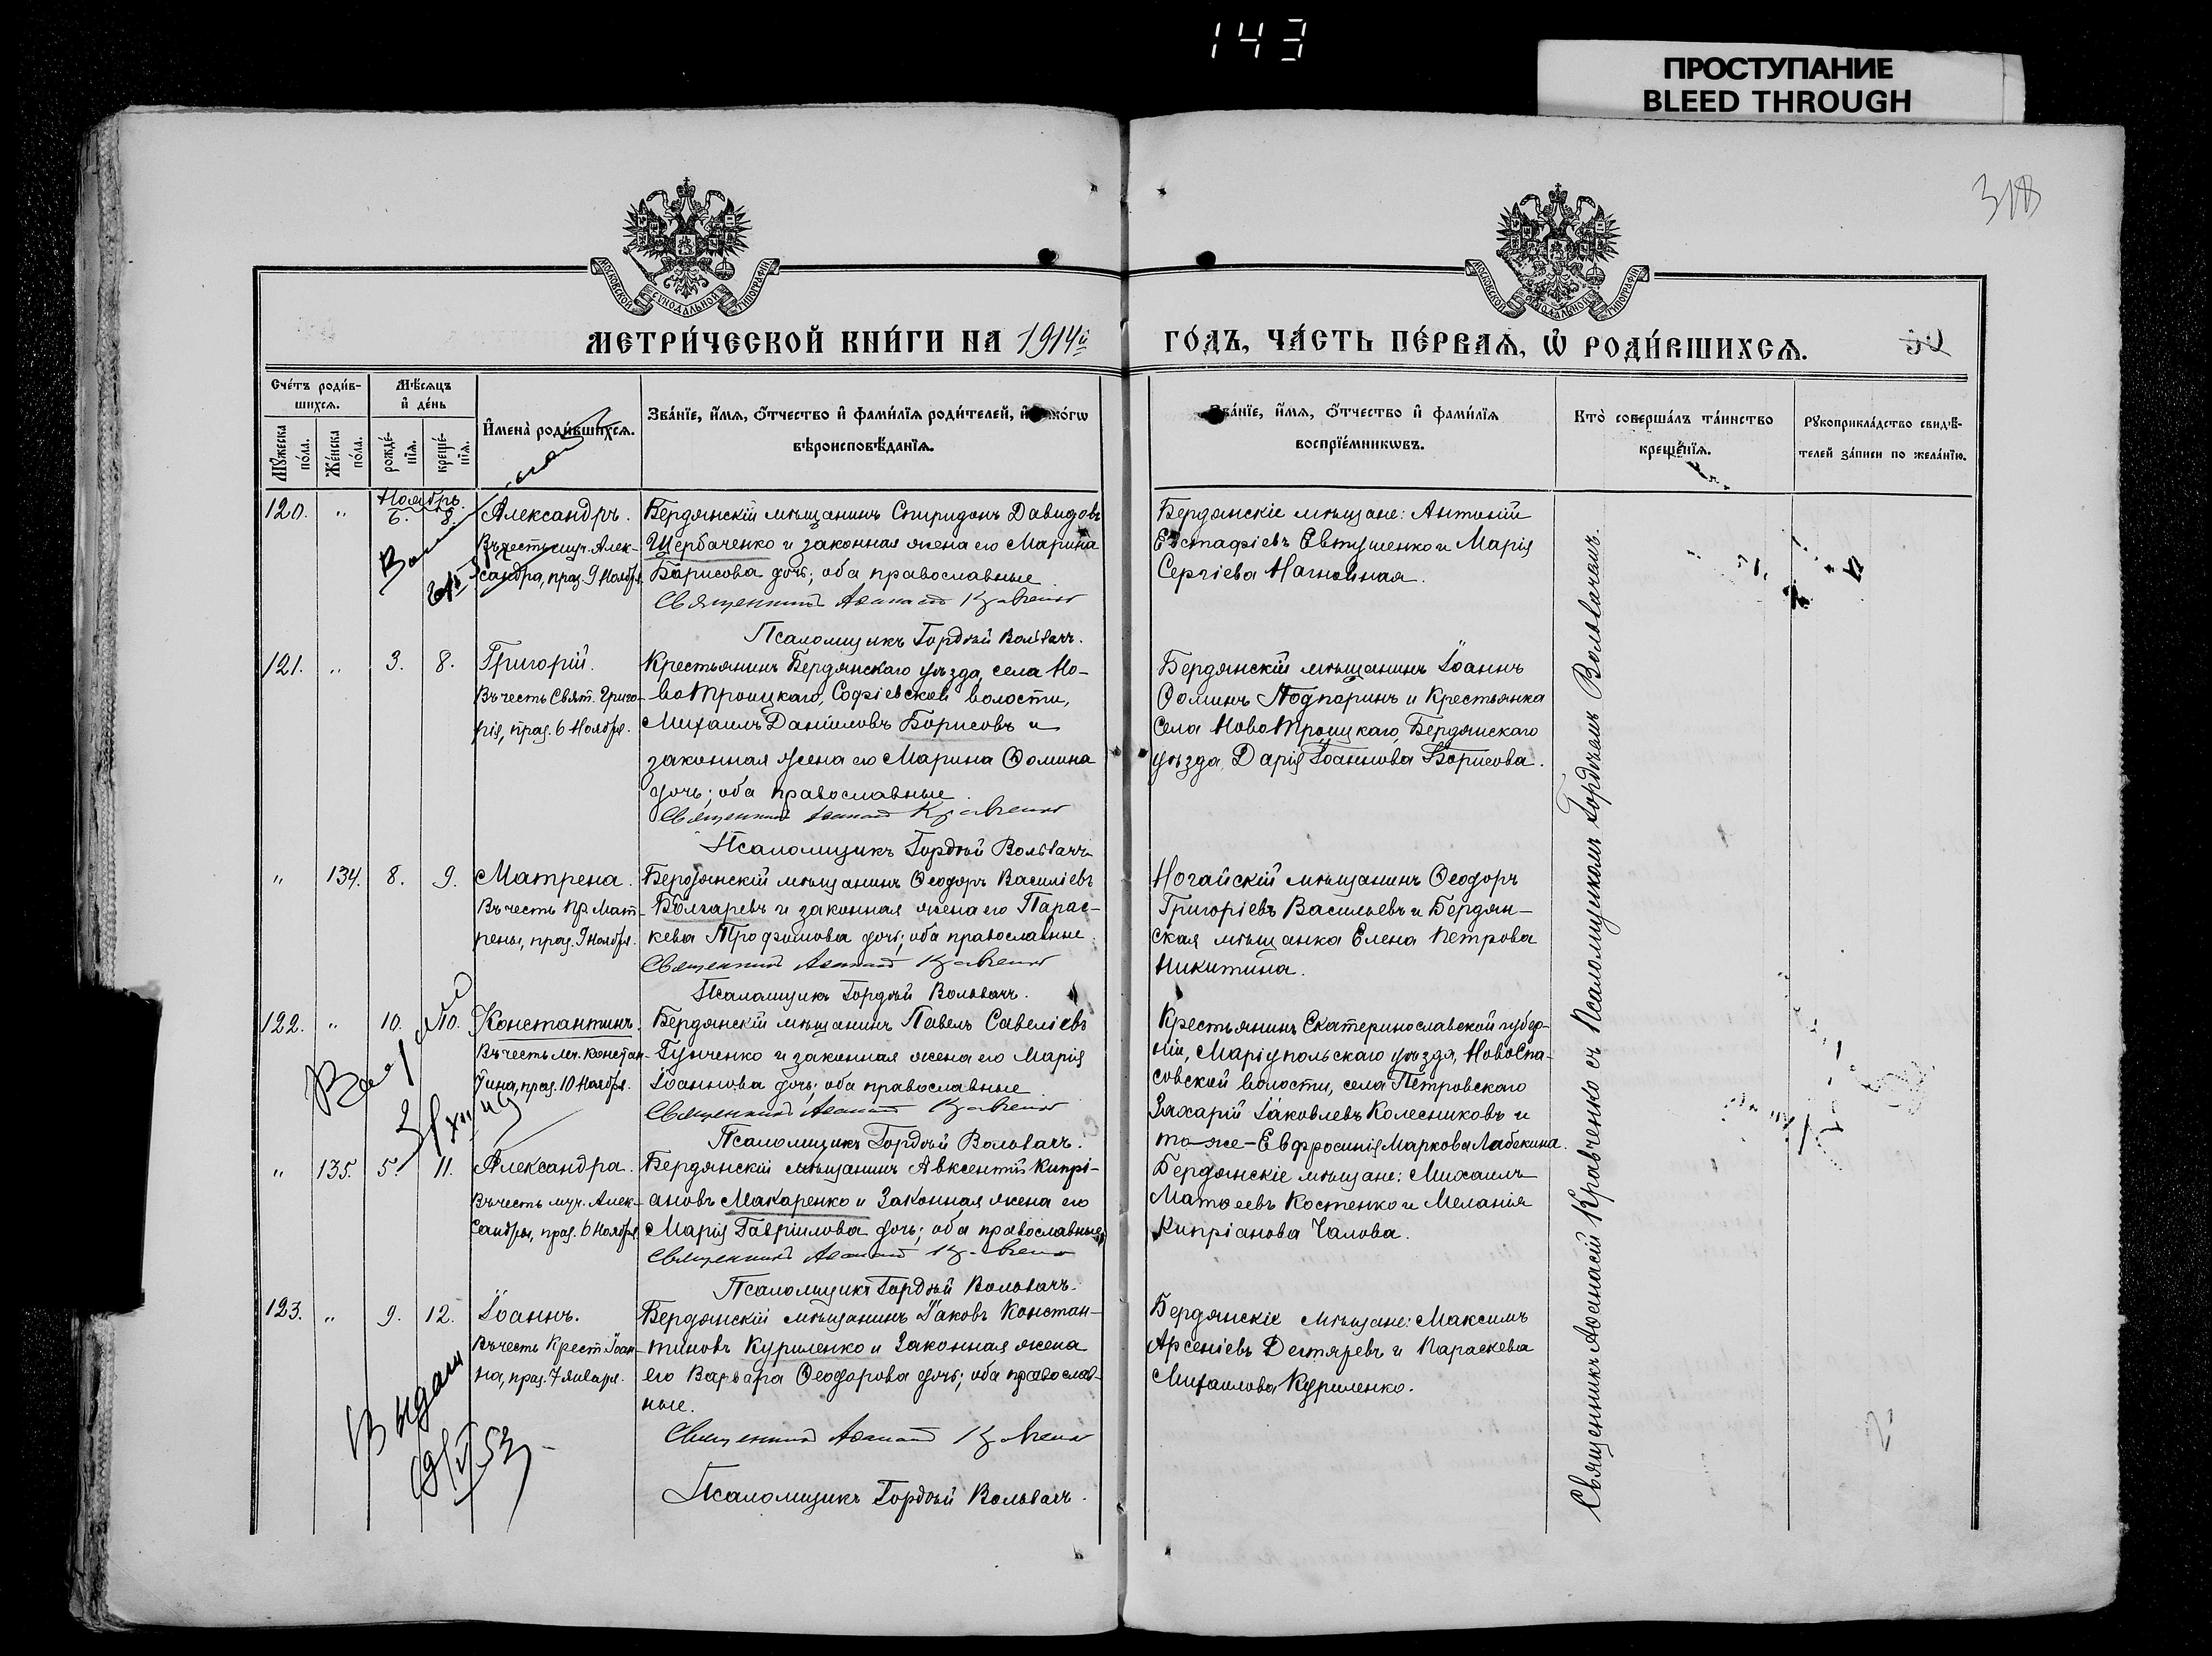 143
ПРОСТУПАНИЕ
BLEED THROUGH
МОСКОВСКОЙ СѴНОДАЛЬНОЙ ТИПОГРАФІИ
МОСКОВСКОЙ СѴНОДАЛЬНОЙ ТИПОГРАФІИ
МЕТРИ́ЧЕСКОЙ КНИ́ГИ НА 1914й
ГО́ДЪ, ЧА́СТЬ ПЕ́РВАѦ, Ѡ҆ РОДИ́ВШИХСѦ.
50
Сче́тъ роди́в-
шихсѧ.
Мѣ́сѧцъ
и҆ де́нь
Мꙋ́жеска по́ла.
Же́нска по́ла.
рожде́-нїѧ.
креще́-нїѧ.
И҆мена̀ роди́вшихсѧ.
Зва́нїе, и҆́мѧ, ѻ҆́тчество и҆ фами́лїѧ роди́телей, и҆
вѣроисповѣ́данїѧ.
Зва́нїе, и҆́мѧ, ѻ҆́тчество и҆ фами́лїѧ
воспрїе́мникѡвъ.
Кто̀ соверша́лъ та́инство
креще́нїѧ.
Рꙋкоприкла́дство свидѣ́-
телей за́писи по жела́нїю.
Ноябрь.
120. " 6. 8. Александръ.
Въ честь муч. Алек-
сандра, праз. 9 Ноября.
Бердянскій мѣщанинъ Спиридонъ Давидовъ
Щербаченко и законная жена его Марина
Борисова дочь; оба православные.
Священникъ Аѳанасій Кравченко
Псаломщикъ Гордѣй Вольвачъ.
Бердянскіе мѣщане: Антоній
Евстафіевъ Евтушенко и Марія
Сергіева Нагнойная.
121. " 3. 8. Григорій.
Въ честь Свят. Григо-
рія, праз. 6 Ноября.
Крестьянинъ Бердянскаго уѣзда, села Но-
воТроицкаго, Софіевской волости,
Михаилъ Даніиловъ Борисовъ и
законная жена его Марина Ѳомина
дочь; оба православные.
Священникъ Аѳанасій Кравченко
Псаломщикъ Гордѣй Вольвачъ
Бердянскій мѣщанинъ Іоаннъ
Ѳоминъ Подпаринъ и Крестьянка
села НовоТроицкаго, Бердянскаго
уѣзда, Дарія Іоаннова Борисова.
" 134. 8. 9. Матрена.
Въ честь Пр. Мат-
рены, праз. 9 Ноября.
Бердянскій мѣщанинъ Ѳеодоръ Василіевъ
Болгаревъ и законная жена его Парас-
кева Трофимова дочь; оба православные.
Священникъ Аѳанасій Кравченко
Псаломщикъ Гордѣй Вольвачъ.
Ногайскій мѣщанинъ Ѳеодоръ
Григоріевъ Васильевъ и Бердян-
ская мѣщанка Елена Петрова
Никитина.
122. " 10. 10. Константинъ.
Въ честь мч. Констан-
тина, праз. 10 Ноября.
Бердянскій мѣщанинъ Павелъ Савеліевъ
Гунченко и законная жена его Марія
Іоаннова дочь; оба православные
Священникъ Аѳанасій Кравченко
Псаломщикъ Гордѣй Вольвачъ.
Крестьянинъ Екатеринославской губер-
ніи, Маріупольскаго уѣзда, НовоСпа-
совской волости, села Петровскаго
Захарій Іаковлевъ Колесниковъ и
то-же-Евфросинія Маркова Лабекина.
" 135. 5. 11. Александра.
Въ честь муч. Алек-
сандры, праз. 6 Ноября.
Бердянскій мѣщанинъ Авксентій Кипрі-
ановъ Макаренко и Законная жена его
Марія Гавріилова дочь; оба православные.
Священникъ Аѳанасій Кравченко
Псаломщикъ Гордѣй Вольвачъ.
Бердянскіе мѣщане: Михаилъ
Матѳеевъ Костенко и Меланія
Кипріанова Чалова.
123. " 9. 12. Іоаннъ.
Въ честь Крест. Іоан-
на, праз. 7 Января.
Бердянскій мѣщанинъ Іаковъ Констан-
тиновъ Куриленко и Законная жена
его Варвара Ѳеодорова дочь; оба православ-
ные.
Священникъ Аѳанасій Кравченко
Псаломщикъ Гордѣй Вольвачъ.
Бердянскіе мѣщане: Максимъ
Арсеніевъ Дегтяревъ и Параскева
Михаилова Куриленко.
Священникъ Аѳанасій Кравченко съ Псаломщикомъ Гордѣемъ Вольвачемъ.